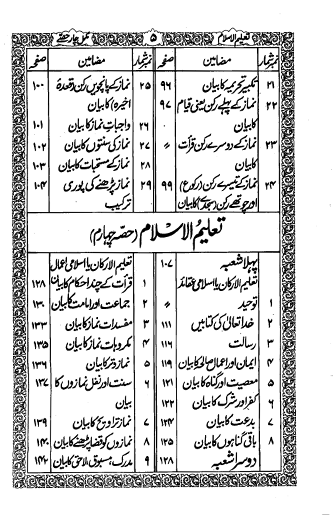 تعلیم الاسلام ۵ مکمل چار حصے
نمبر شمار مضامین صفحہ
۲۱ تکبیر تحریمہ کا بیان ۹۶
۲۲ نماز کے پہلے رکن یعنی قیام ۹۷
کا بیان
۲۳ نماز کے دوسرے رکن قرأت 〃
کا بیان
۲۴ نماز کے تیسرے رکن (رکوع) ۹۹
اور چوتھے رکن (سجدہ) کا بیان
نمبر شمار مضامین صفحہ
۲۵ نماز کے پانچویں رکن (قعدۂ ۱۰۰
اخیرہ) کا بیان
۲۶ واجبات نماز کا بیان ۱۰۱
۲۷ نماز کی سنتوں کا بیان ۱۰۲
۲۸ نماز کے مستحبات کا بیان ۱۰۳
۲۹ نماز پڑھنے کی پوری ۱۰۴
ترکیب
تعلیم الاسلام (حصہ چہارم)
پہلا شعبہ ۱۰۷
تعلیم الارکان یا اسلامی عقائد
۱ توحید 〃
۲ خدا تعالیٰ کی کتابیں ۱۱۱
۳ رسالت ۱۱۶
۴ ایمان اور اعمال صالحہ کا بیان ۱۱۹
۵ معصیت اور گناہ کا بیان ۱۲۱
۶ کفر اور شرک کا بیان ۱۲۲
۷ بدعت کا بیان ۱۲۴
۸ باقی گناہوں کا بیان ۱۲۵
دوسرا شعبہ ۱۲۸
تعلیم الارکان یا اسلامی اعمال
۱ قرأت کے چند احکام کا بیان ۱۲۸
۲ جماعت اور امامت کا بیان ۱۳۰
۳ مفسدات نماز کا بیان ۱۳۳
۴ مکروہات نماز کا بیان ۱۳۵
۵ نماز وتر کا بیان ۱۳۶
۶ سنت اور نفل نمازوں کا ۱۳۷
بیان
۷ نماز تراویح کا بیان ۱۳۹
۸ نمازوں کو قضا پڑھنے کا بیان ۱۴۰
۹ مدرک، مسبوق، لاحق کا بیان ۱۴۲